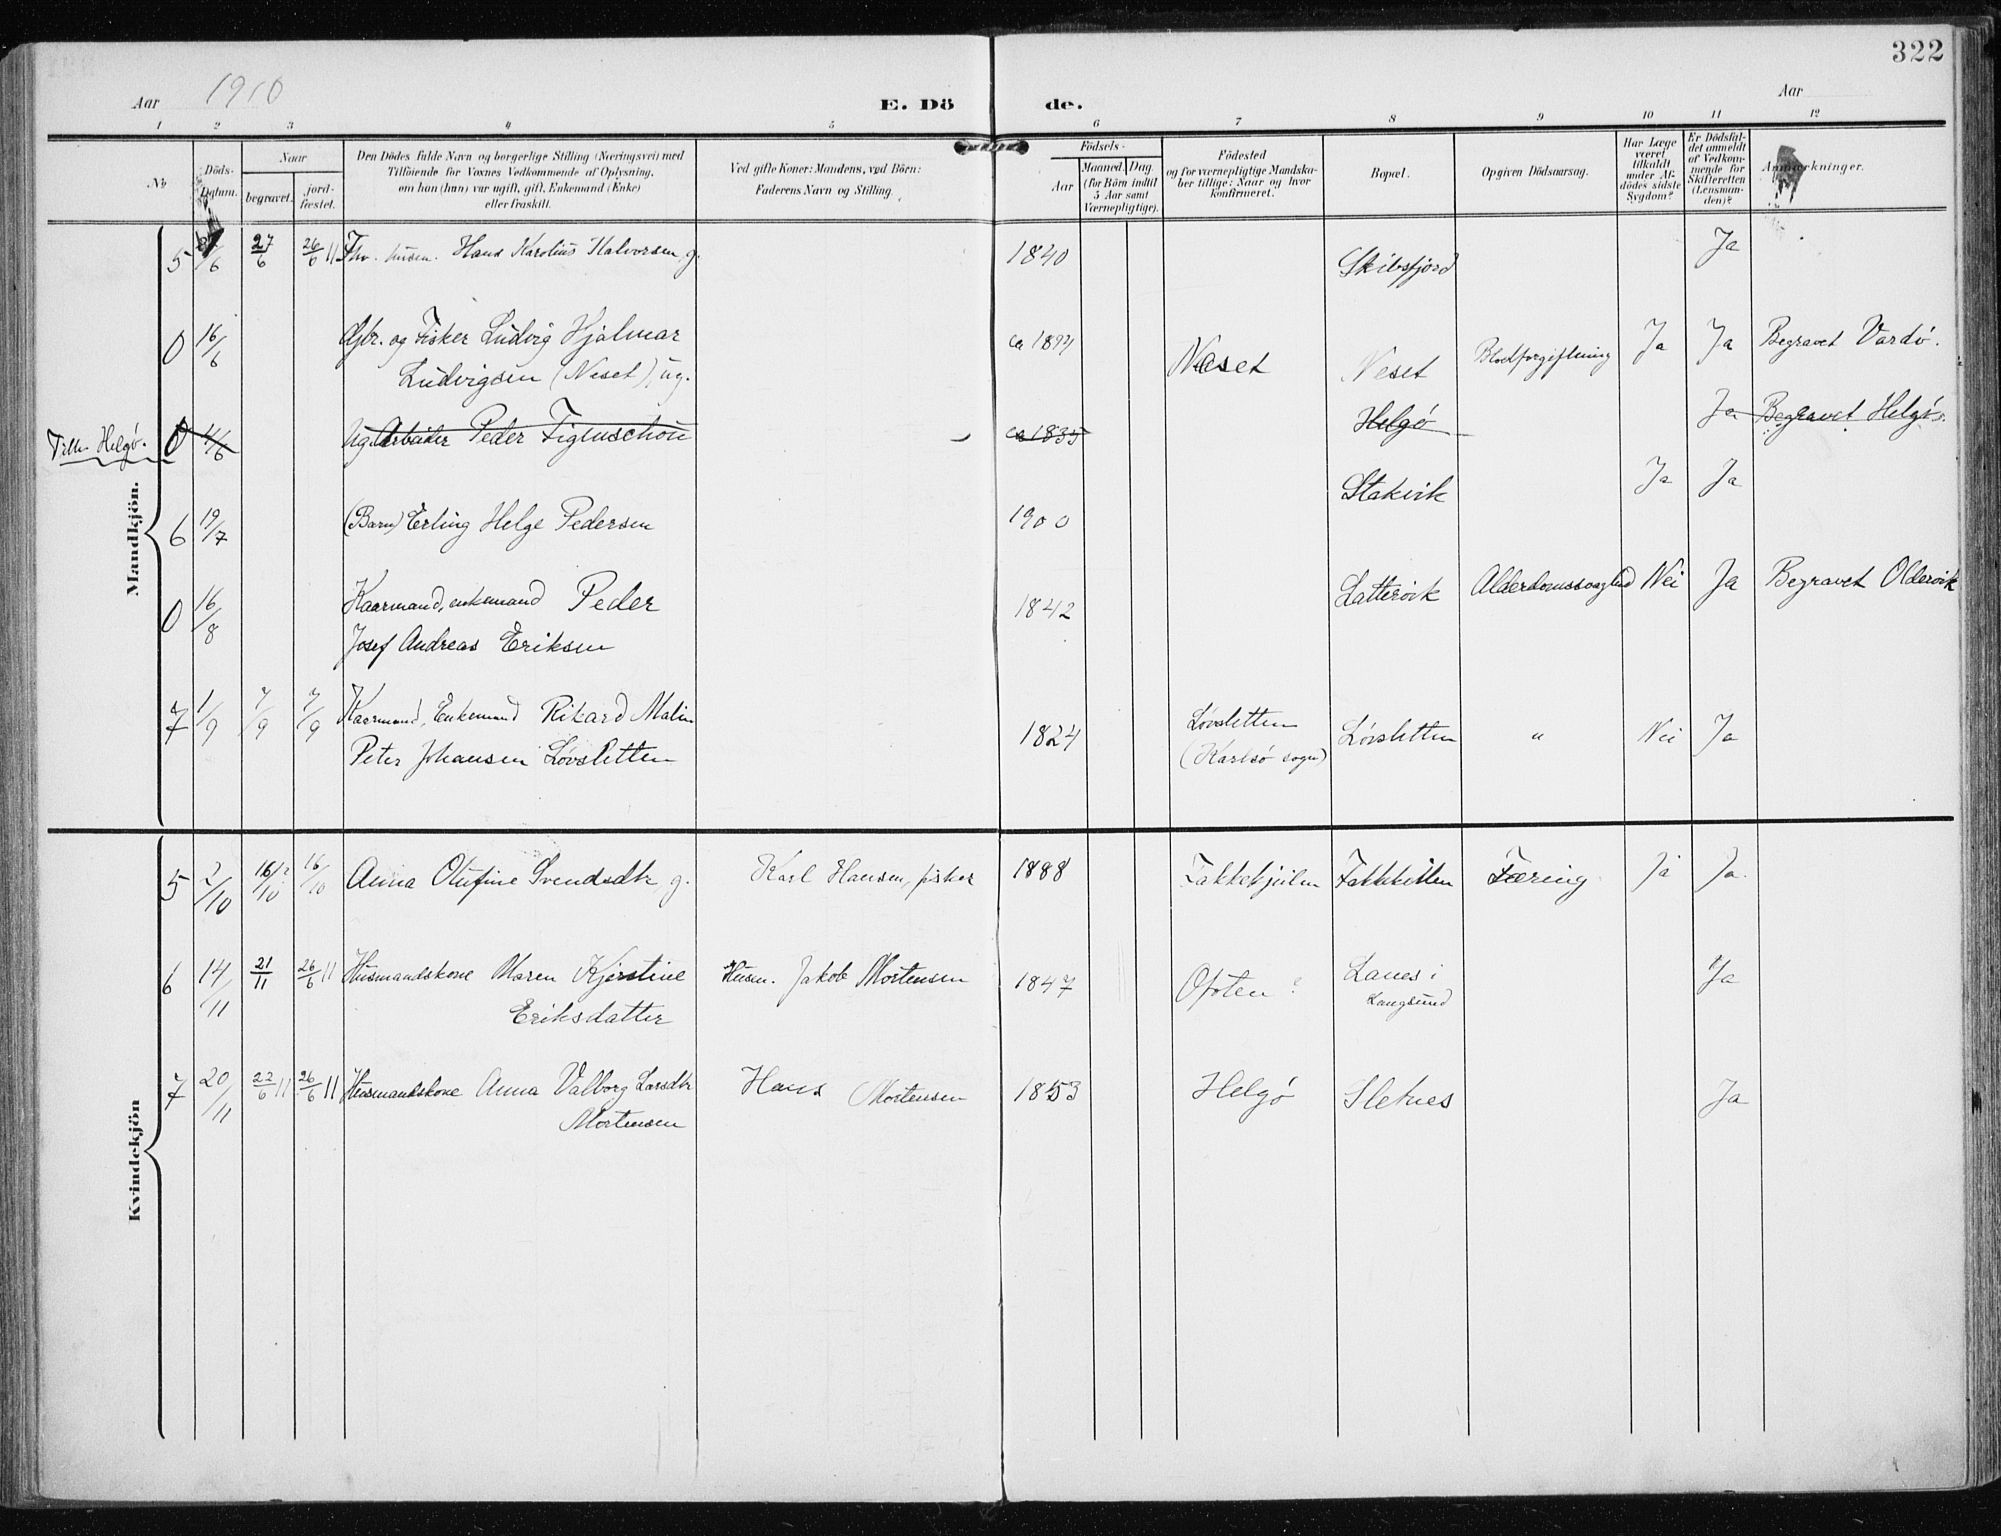 322
Aar 1910 E. Dö de. Aar
1 2 3 4 5 6 7 8 9 10 11 12
No
Döds-Datum.
Naar
begravet.
jord-fæstet.
Den Dödes fulde Navn og borgerlige Stilling (Næringsvei) med
Tilföiende for Voxnes Vedkommende af Oplysning,
om han (hun) var ugift, gift, Enkemand (Enke)
eller fraskilt.
Ved gifte Koner: Mandens, ved Börn:
Faderens Navn og Stilling.
Födsels-
Aar
Maaned. Dag.
(for Börn indtil
5 Aar samt
Værnepligtige).
Födested
og for værnepligtige Mandska-
ber tillige: Naar og hvor
konfirmeret.
Bopæl.
Opgiven Dödsaarsag.
Har Læge
været
tilkaldt
under Af-
dödes sidste
Sygdom?
Er Dödsfal-
det anmeldt
af Vedkom-
mende for
Skifteretten
(Lensman-
den)?
Anmærkninger.
Mandkjön.
5 /6 27/6 26/6 11 Hans Karolius Halvorsen, g. 1840 Skibsfjord Ja
0 16/6 Gbr. og Fisker Ludvig Hjalmar ca Næset Neset Blodforgiftning Ja Ja Begravet Vardø.
Ludvigsen (Neset), ug.
Helgø. 0 4/6 Ug. Arbeider Peder Figenschou ca 1835 Helgø Ja Begravet Helgø.
6 19/7 (Barn) Erling Helge Pedersen 1900 Stakvik Ja Ja
0 16/8 Kaarmand, enkemand Peder 1842 Lattervik Alderdomssvaghed Nei Ja Begravet Oldervik
Josef Andreas Eriksen
7 1/9 7/9 7/9 Kaarmand, Enkemand Rikard Malin 1824 Løvsletten Løvsletten " Nei Ja
Peter Johansen Løvsletten (Karlsø sogn)
Kvindekjön
5 2/10 16/10 16/10 Anna Olufine Svendsdtr, g. Karl Hansen, fisker 1888 Takkekjeilen Tæring Ja Ja.
6 14/11 21/11 26/6 11 Husmandskone Maren Kjerstine Husm. Jakob Mortensen 1847 Ofoten? Lanes i Ja
Eriksdatter Langsund
7 20/11 22/6 11 26/6 11 Husmandskone Anna Valborg Larsdtr Hans Mortensen 1853 Helgø Sletnes Ja
Mortensen